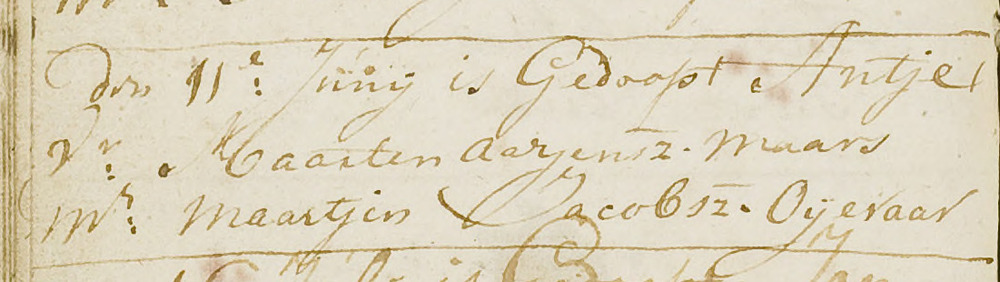 den 11e: Juny is Gedoopt Antje
Vr: Maarten Aarjensz. Maars
Mr: Maartjen Jacobsz. Oyevaar